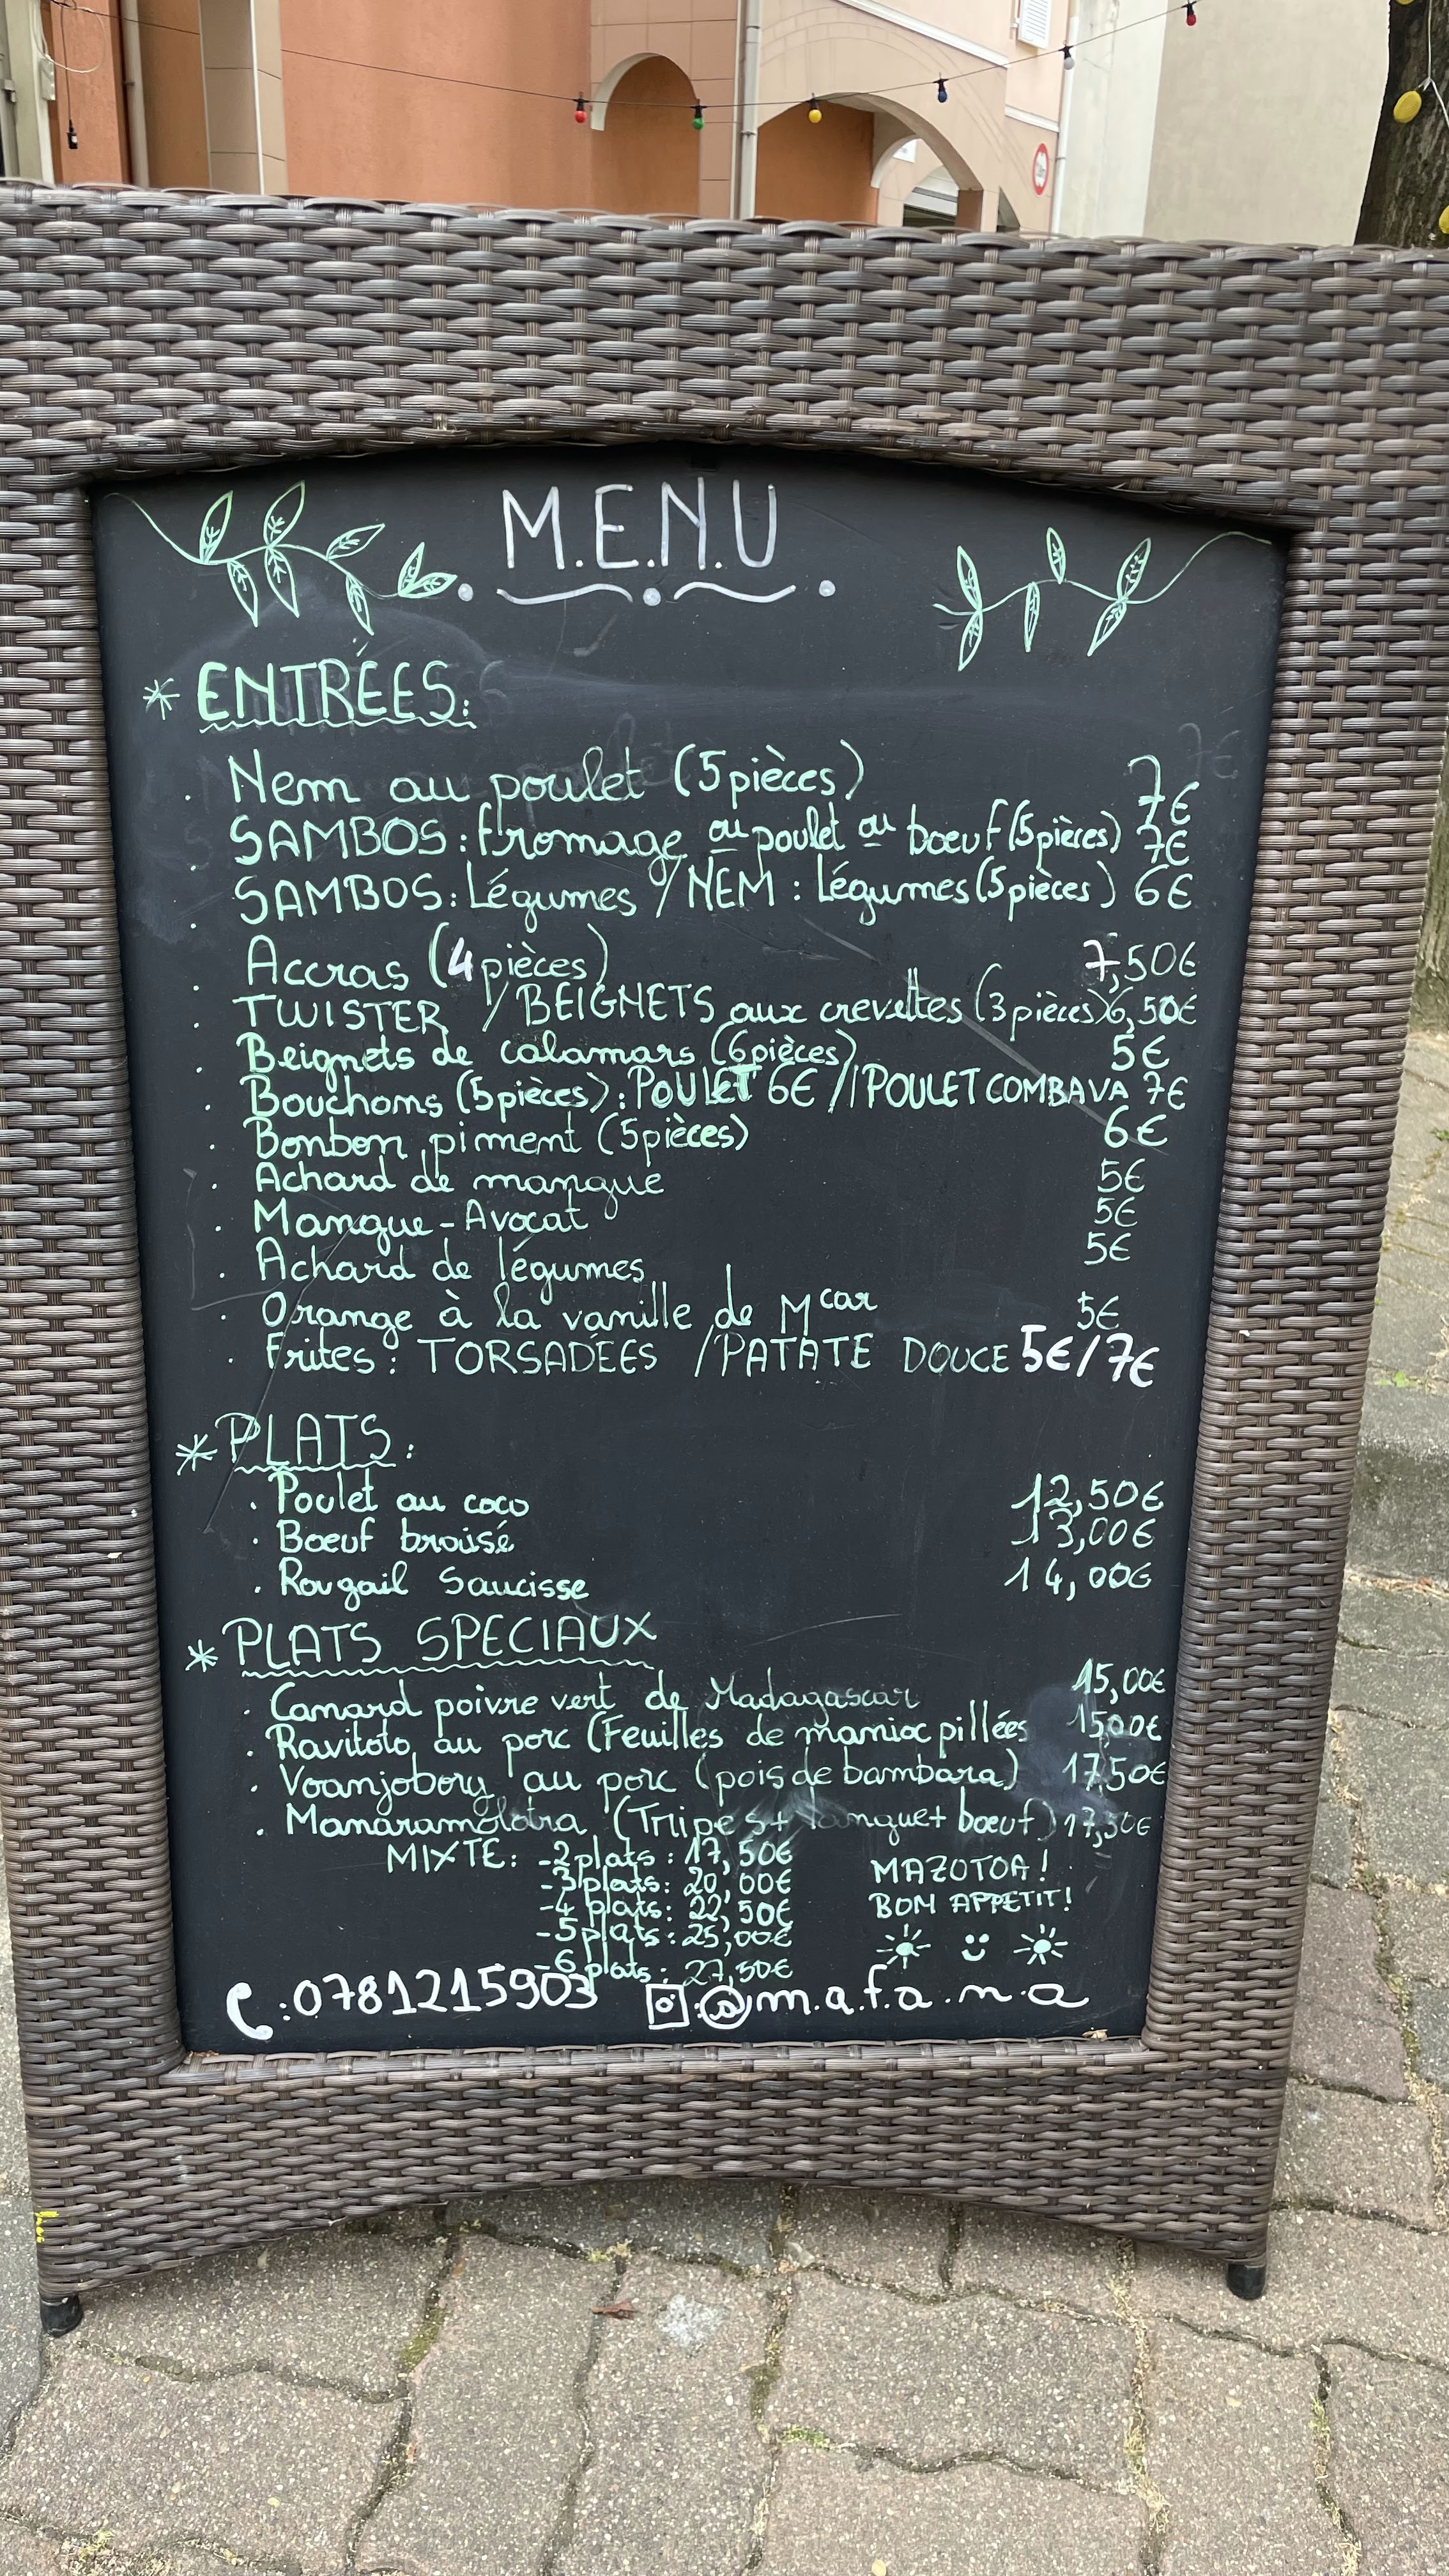 M.E.N.U
* ENTRÉES:
. Nem au poulet (5 pièces) 7€
. SAMBOS: fromage ou poulet ou boeuf (5 pièces) 7€
. SAMBOS: Légumes / NEM: Légumes (5 pièces) 6€
. Accras (4 pièces) 7,50€
. TWISTER / BEIGNETS aux crevettes (3 pièces) 6,50€
. Beignets de calamars (6 pièces) 5€
. Bouchons (5 pièces): POULET 6€ // POULET COMBAVA 7€
. Bonbon piment (5 pièces) 6€
. Achard de mangue 5€
. Mangue - Avocat 5€
. Achard de légumes 5€
. Orange à la vanille de Mcar 5€
. Frites: TORSADÉES / PATATE DOUCE 5€/7€
* PLATS:
. Poulet au coco 12,50€
. Boeuf braisé 13,00€
. Rougail Saucisse 14,00€
* PLATS SPECIAUX
. Canard poivre vert de Madagascar 15,00€
. Ravitoto au porc (Feuilles de manioc pillées 15,00€
. Voanjobory au porc (pois de bambara) 17,50€
. Manaramolotra (Tripes + langue + boeuf) 17,50€
MIXTE: -2 plats: 17,50€
-3 plats: 20,00€
-4 plats: 22,50€
-5 plats: 25,00€
-6 plats: 27,50€
MAZOTOA!
BON APPETIT!
:0781215903 @m.a.f.a.n.a